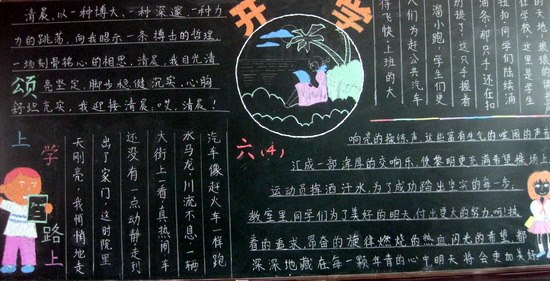 开学
清晨,以一种博大、一种深邃、一种力
力的跳荡,向我昭示一条搏击的哲理
一场刻骨铭心的相思,清晨,我目光清
亮坚定,脚步稳健沉实,心胸
舒坦充实,我迎接清晨。哎,清晨!
颂
上学路上
天刚亮,我悄悄地走
出了家门,这时院里
还没有一点动静走到
大街上,看,真热闹,车
水马龙,川流不息一辆
汽车像赶火车一样跑
得飞快上班的大
人们为了赶公共汽车
溜小跑,学生们更
提了,这只手握着
油条,那只手还在扣
钮扣同学们陆续涌
在学校,这里是学生
的天地,琅琅的
六(4)
响亮的操练声,这些富有生气的喧闹的声音
汇成一部浑厚的交响乐,使黎明更充满希望操场上
运动员挥洒汗水,为了成功踏出坚实的每一步,
教室里同学们为了美好的明天,付出更大的努力,呵!执
着的追求,昂奋的旋律燃烧的热血,闪光的希望,都
深深地藏在每一颗年青的心中明天将会更加美好